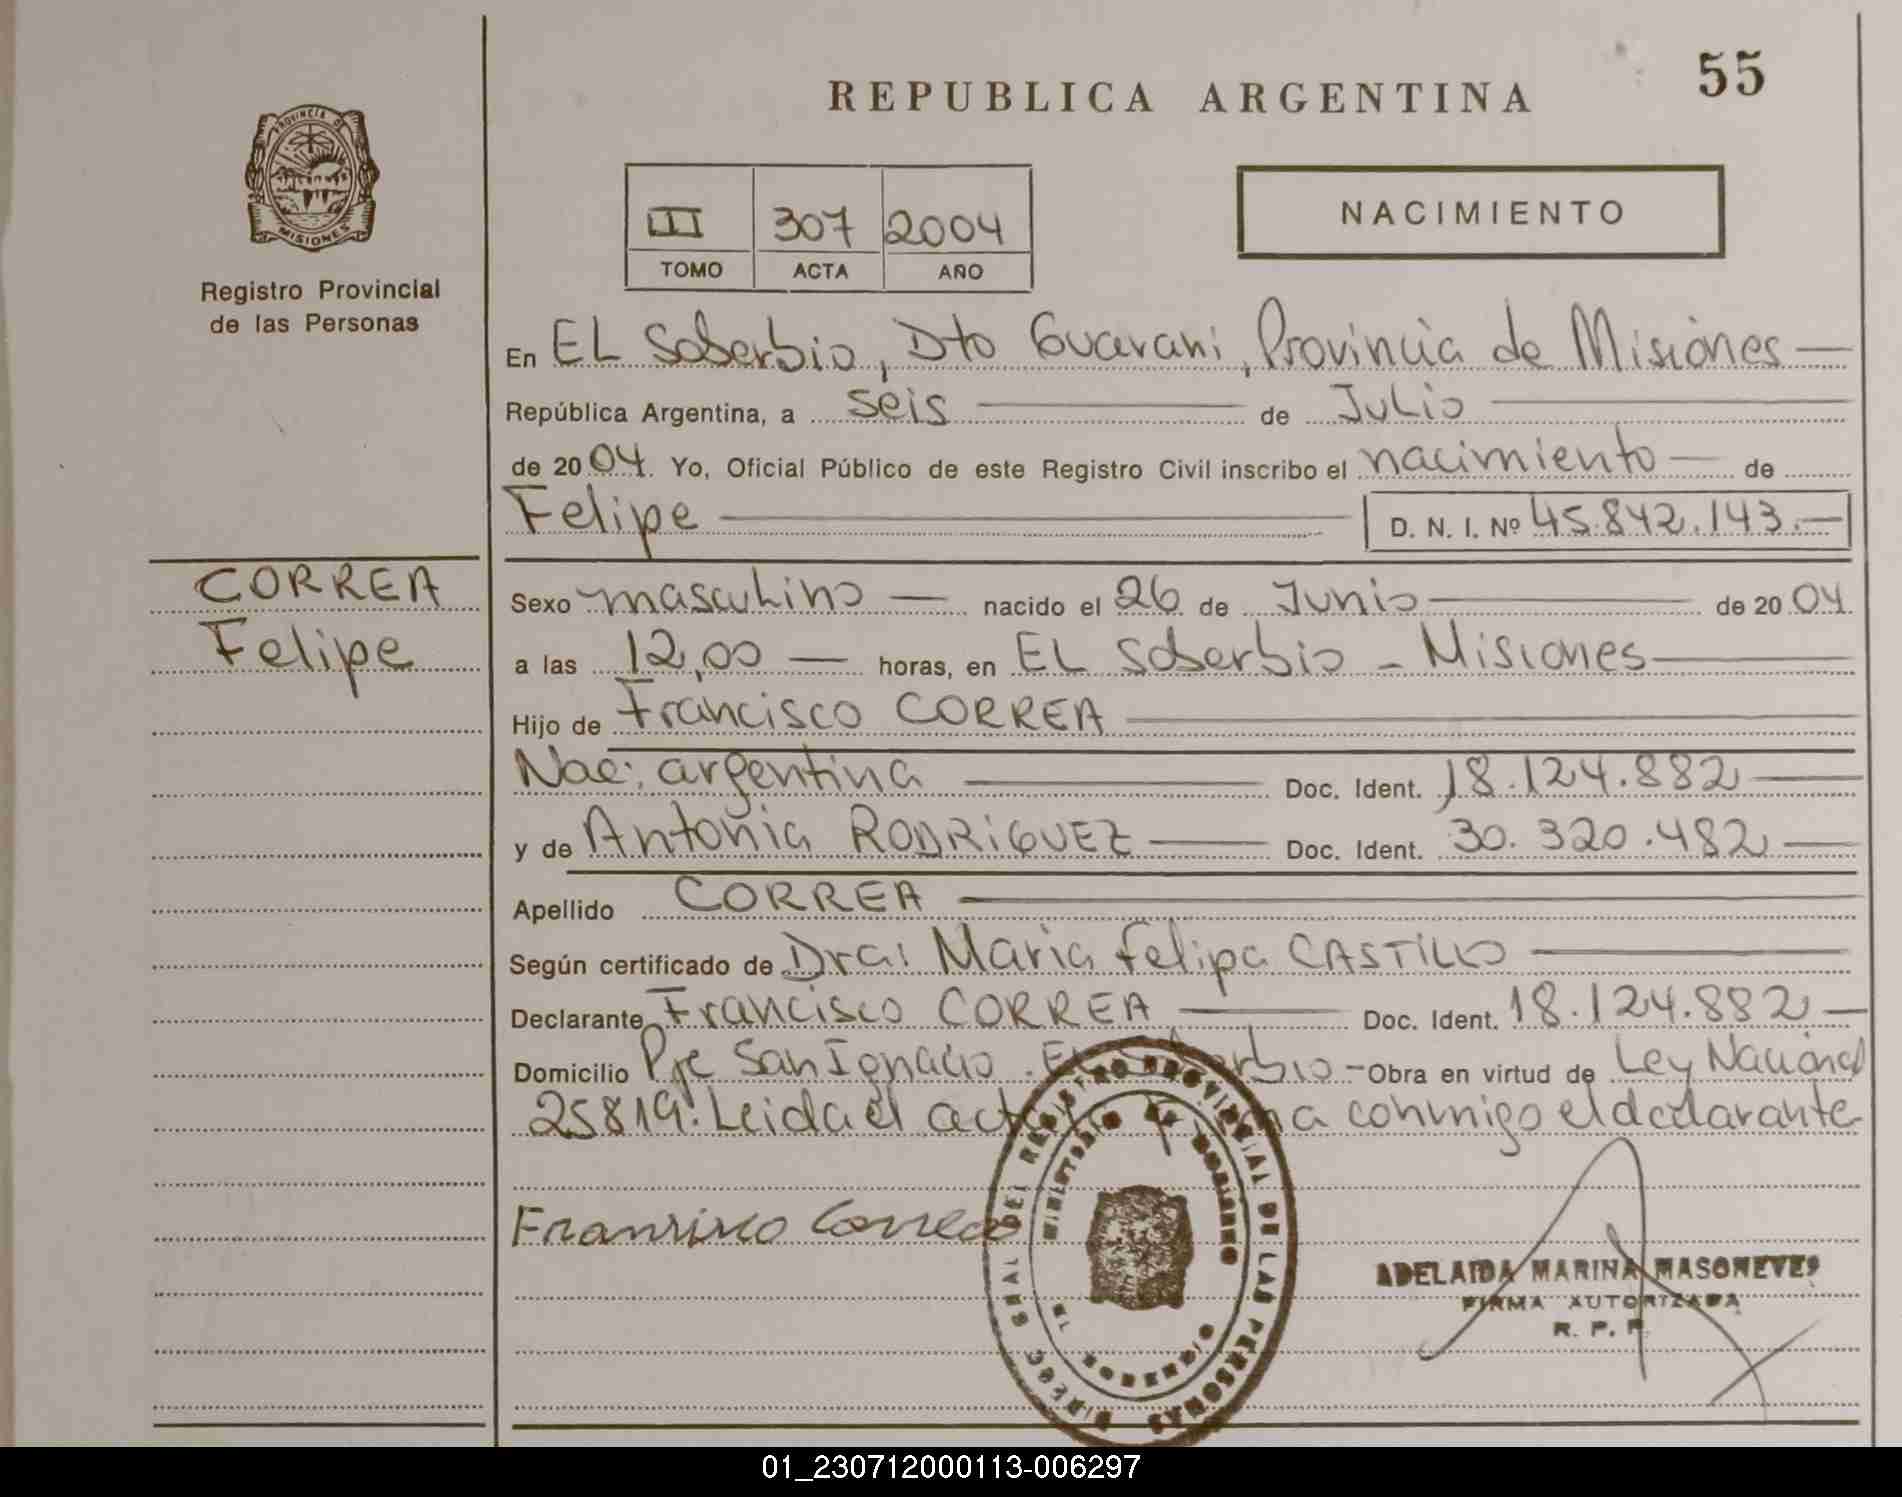 55
REPUBLICA ARGENTINA
PROVINCIA DE
MISIONES
Registro Provincial
de las Personas
III 307 2004
TOMO ACTA AÑO
NACIMIENTO
En EL Soberbio, Dto Guarani, Provincia de Misiones
República Argentina, a seis de Julio
de 2004. Yo, Oficial Público de este Registro Civil inscribo el nacimiento de
Felipe D. N. I. Nº 45.842.143.
CORREA
Felipe
Sexo masculino nacido el 26 de Junio de 2004
a las 12,00 horas, en EL Soberbio - Misiones
Hijo de Francisco CORREA
Nac: argentina Doc. Ident. 18.124.882
y de Antonia RODRIGUEZ Doc. Ident. 30.320.482
Apellido CORREA
Según certificado de Dra: Maria Felipa CASTILLO
Declarante Francisco CORREA Doc. Ident. 18.124.882
Domicilio Pje San Ignacio. EL Soberbio - Obra en virtud de Ley Nacional
25819. Leida el acta firma conmigo el declarante
Francisco Correa
DIREC GRAL DEL REGISTRO PROVINCIAL DE LAS PERSONAS
EL SOBERBIO
ADELAIDA MARINA MASONEVES
FIRMA AUTORIZADA
R. P. P.
01_230712000113-006297